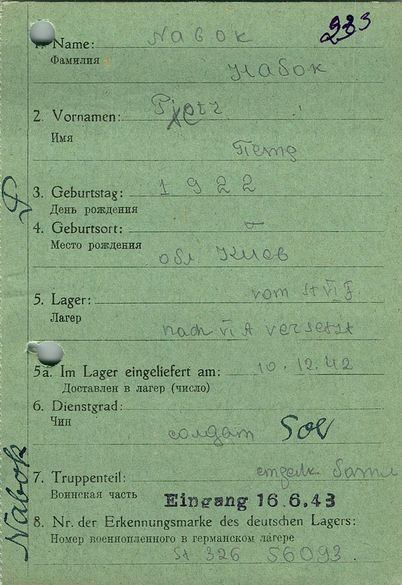 233
1. Name: Nabok
Фамилия
Набок
2. Vornamen: Pjotr
Имя
Петр
3. Geburtstag: 1922
День рождения
4. Geburtsort: —
Место рождения
обл Киев
5. Lager: vom St VI F
Лагер
nach VI A versetzt
5a. Im Lager eingeliefert am: 10.12.42
Доставлен в лагер (число)
6. Dienstgrad:
Чин
солдат Sol
7. Truppenteil:
Воинская часть Eingang 16.6.43
8. Nr. der Erkennungsmarke des deutschen Lagers:
Номер военнопленного в германском лагере
St 326 56093
Nabok